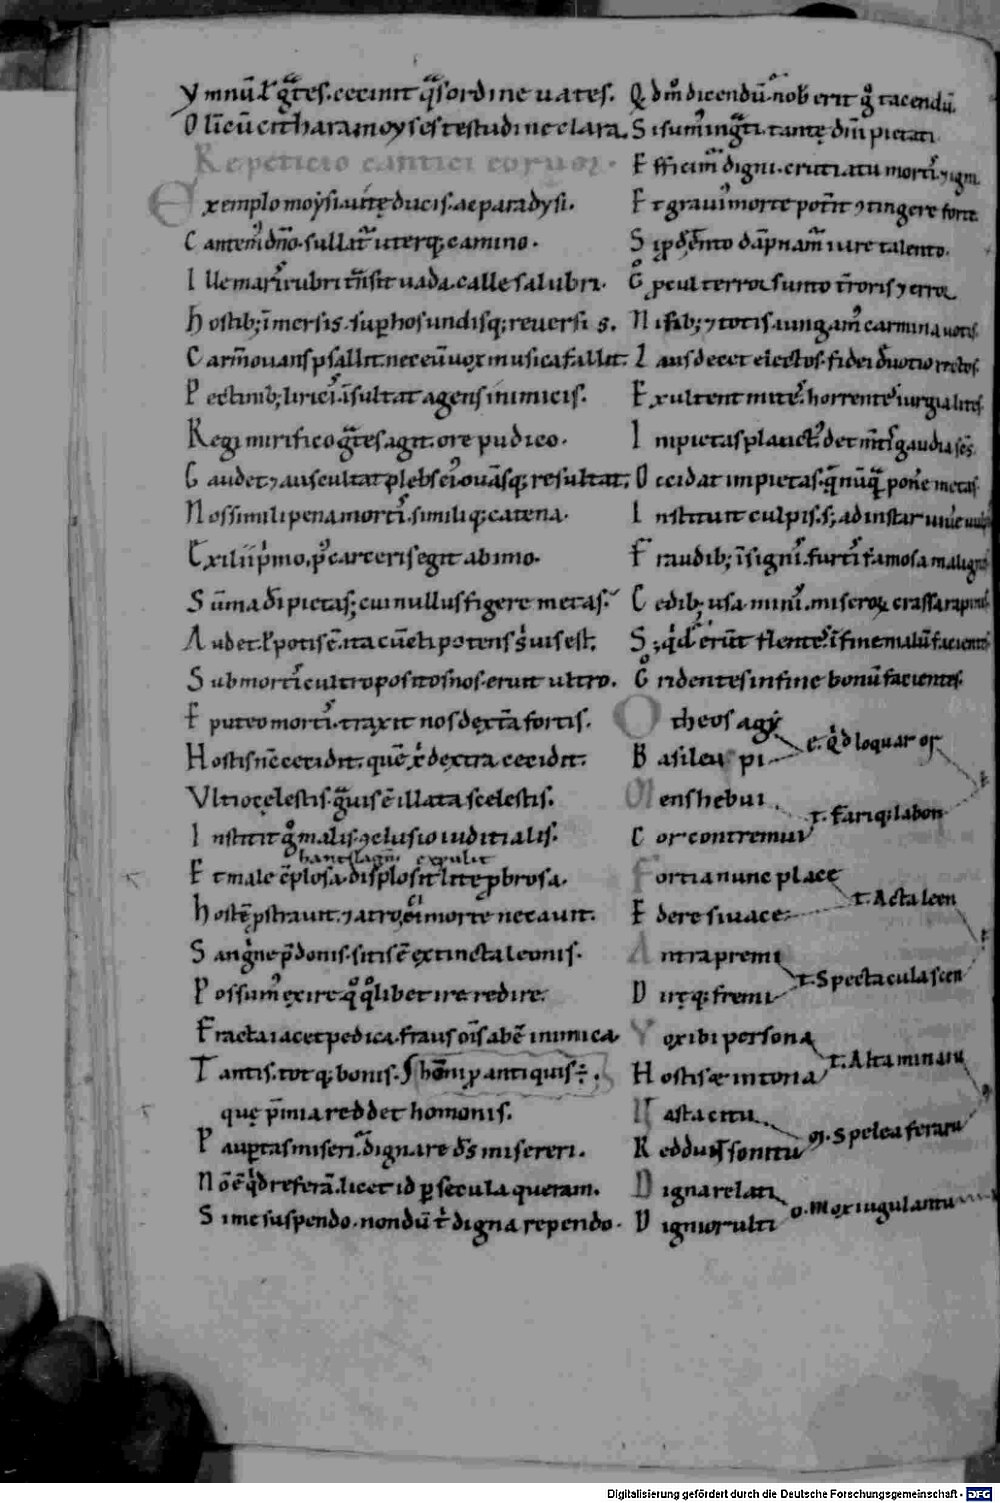 Ymnū ł g̅tes. cecinit q̅s ordine uates.
Olī cū cithara moyses testudine clara.
Repeticio cantici eorum.
Exemplo moysi. uitę ducis. ac paradysi.
Cantem' dn̄o. sullat' uterq; camino.
Ille maris rubri t̄nsit uada. calle salubri.
Hostib; īmersis. sup hos undisq; reuersis.
Carm̄ ouans psallit. nec eū uox musica fallit.
Pectinib; lirici. īsultat agens inimicis.
Regi mirifico g̅tes agit. ore pudico.
Gaudet, 7 auscultat plebs ei' ouās q; resultat,
Nos simili pena mortis. similiq; catena.
Exilii p̄mo, p' carceris egit ab imo.
Sūma dī pietas; cui nullus figere metas.
Audet. ł potis ē. ita cū eli potens
Sub mortis cultro positos nos. eruit ultro.
E puteo mortis. traxit nos dextā fortis.
Hostis nē cecidit. quē x̄ dextra cecidit.
Ultio cęlestis. quis ē illata scelestis.
Institit g° malis. 9clusio iuditialis.
hanc expulit
Et male ēplosa. displosit lite p̱brosa.
Hostē p̱strauit. 7 atro, ei morte necauit.
Sanguine p̄donis. sitis ē extincta leonis.
Possum' exire q°q° libet ire redire.
Fracta iacet pedica. fraus oīs abē inimica
Tantis. tot q; bonis. antiquis
quę p̄mia reddet homonis.
Paup̱tas miseri. dignare ds̄ misereri.
Nō ē q'd referā. licet id p̱ secula queram.
Si me suspendo. nondū t' digna rependo.
Qd' m̄ dicendū. nob' erit g° tacendū.
Si sum' ingrati. tantę dn̄i pietati.
Efficim' digni. cruciatu mortis, 7 igni.
Et graui' morte pot'it 9tingere forte.
Si p̱dēnto dāpnam' iure talento.
G° p̱cul terror. sumto t'roris 7 error
Nisib; 7 totis. iungam' carmina uotis.
Laus decet electos. fidei deuotio rectos.
Exultent mites. horrentes iurgia lites
Impietas planctus. det m̄tis gaudia scs̄.
Occidat impietas. q̄ nūq̄ pon'e metas.
Instituit culpis. s; ad instar uiu'e uulpis
Fraudib; īsignis. furtis famosa malignis
Cedib; usa. minis. miseror. crassa rapinis.
S; q'd erūt flentes. ī fine malū facientes
G° ridentes in fine bonū facientes.
O theos agy
Basileu pi e. Q'd loquar or
Mens hebui
Cor contremui t. Fari q; labor
Fortia nunc place
Edere siuace t. Acta leen
Antra premi
Dirę q; fremi t. Spectacula scen
Vox ibi persona
Hostis æ intona t. Alta minaru
Hasta citu
Reddunt sonitu m. Spelea feraru
Digna relati
Digniorulti o. Mox iugulantu
Digitalisierung gefördert durch die Deutsche Forschungsgemeinschaft - DFG